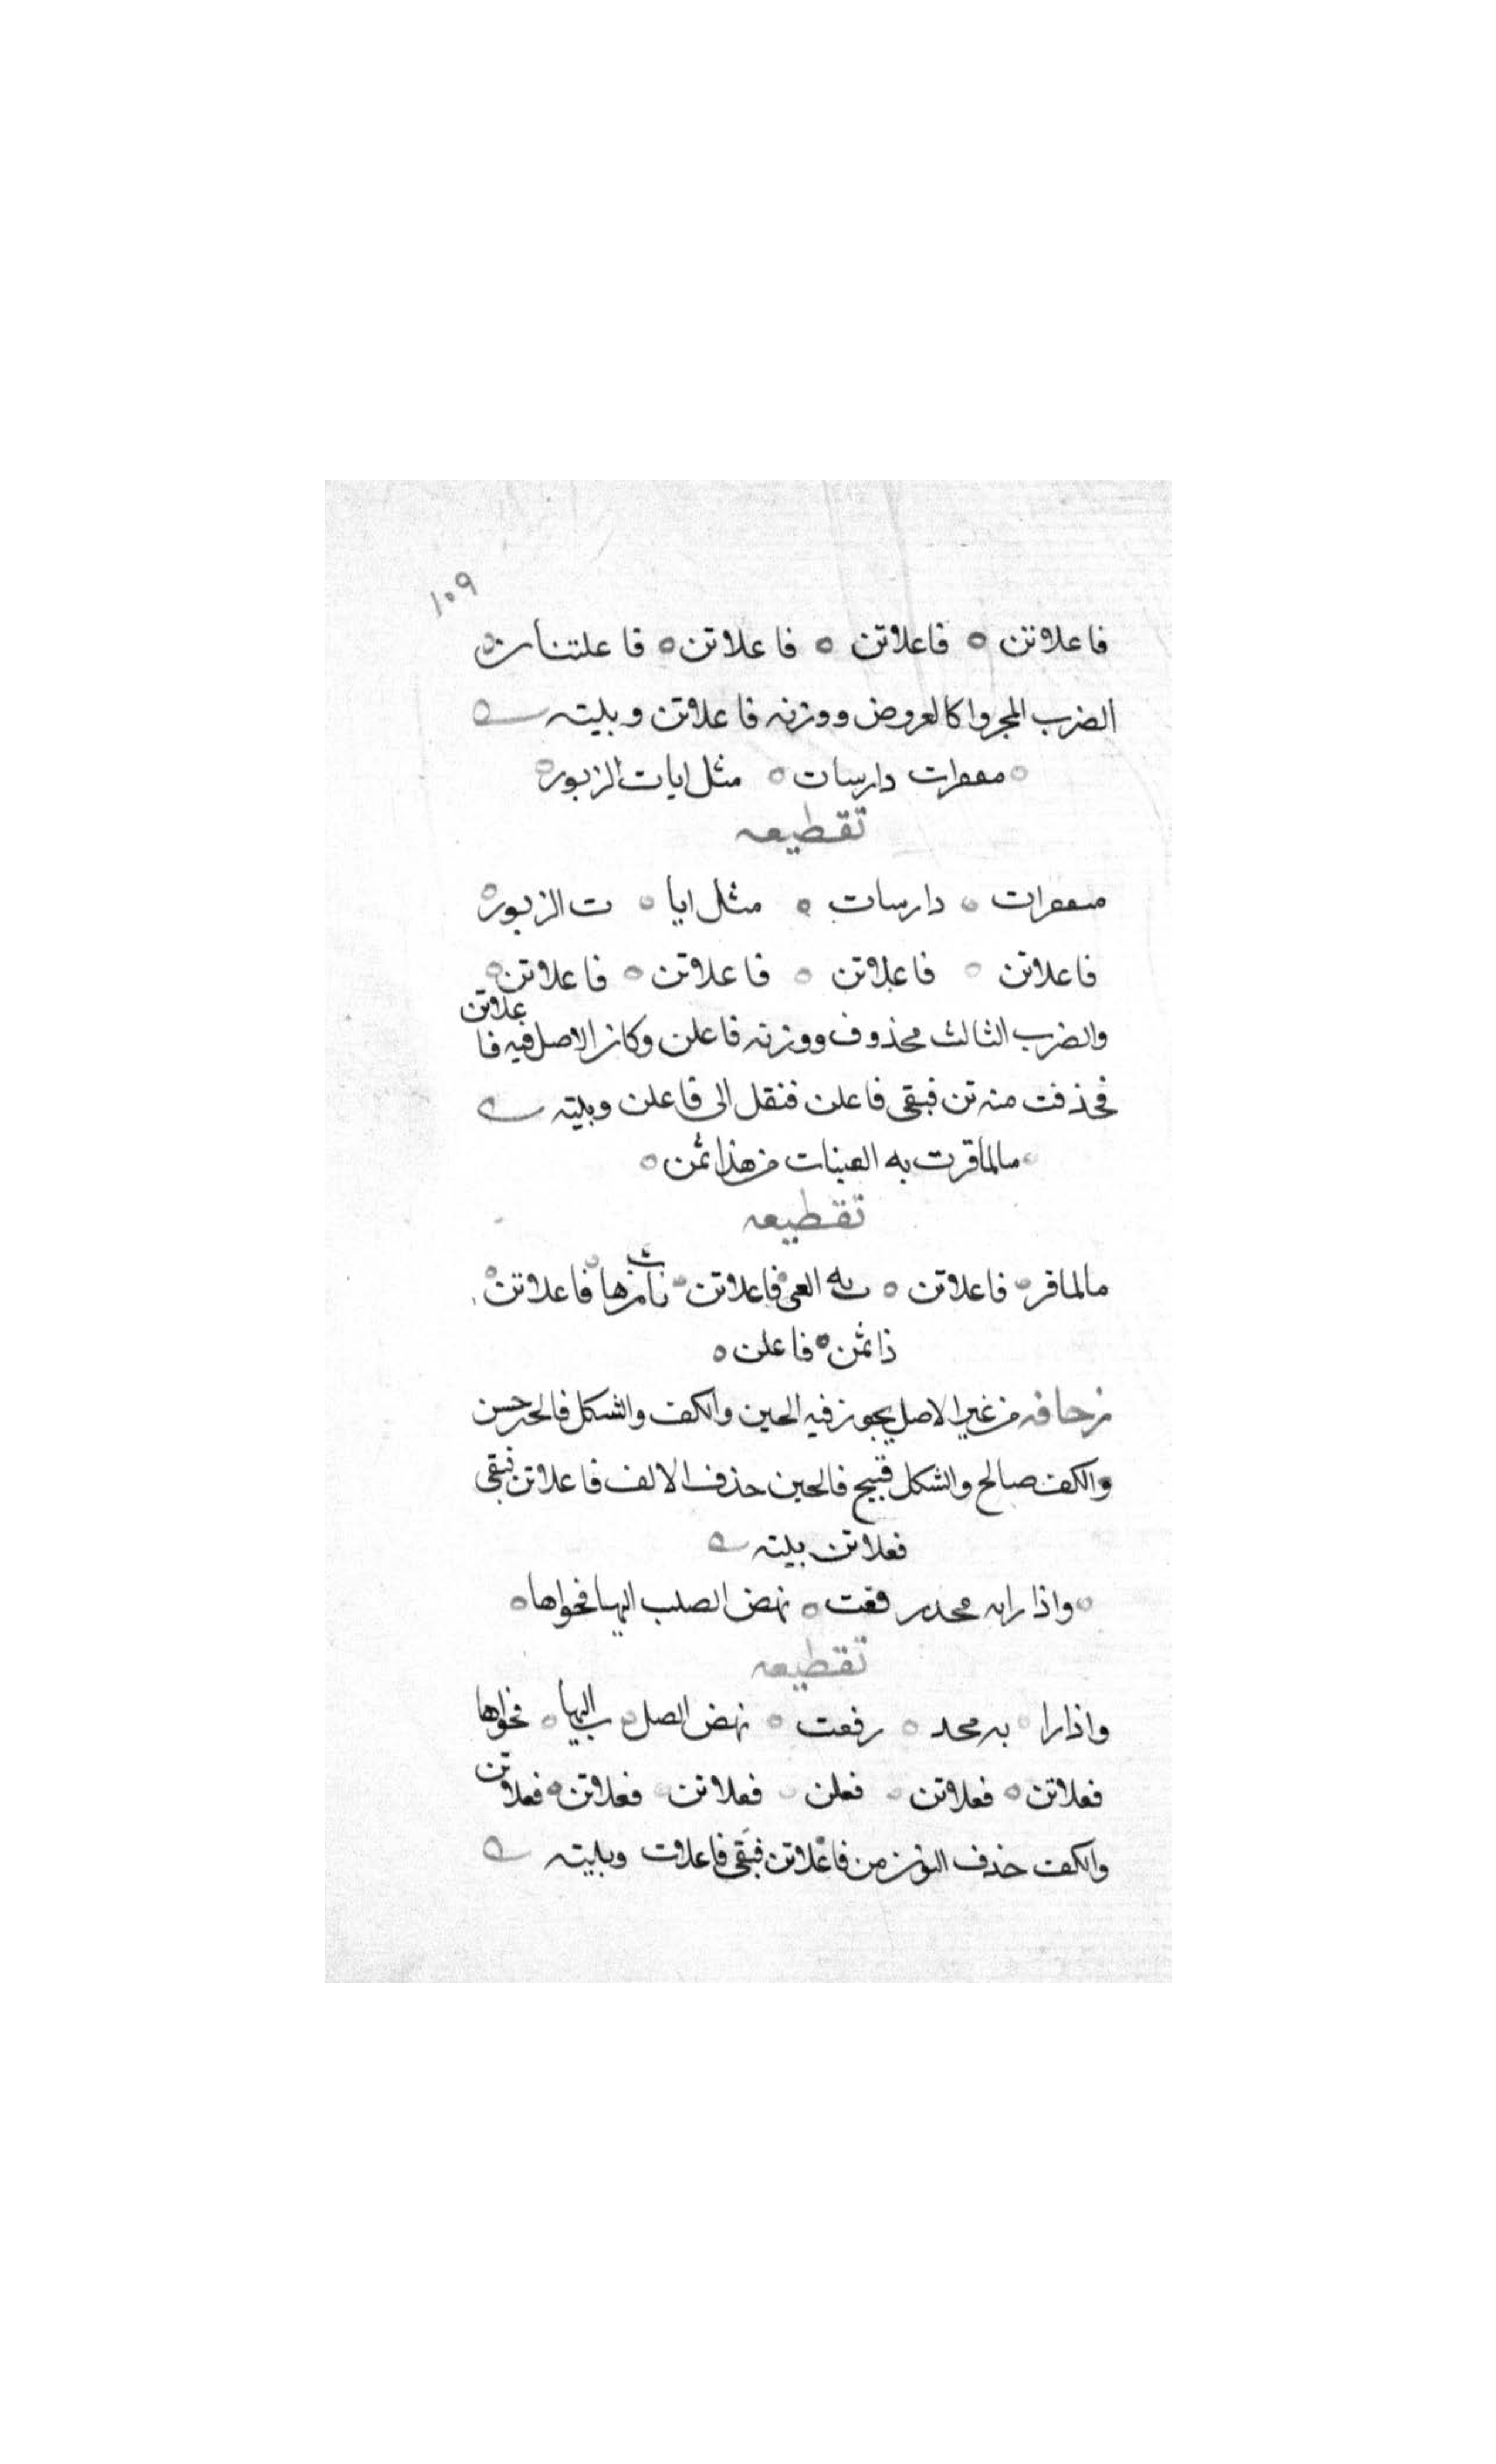 ١٠٩
فاعلاتن ه فاعلاتن ه فاعلاتن ه فاعلتنان ه
الضرب المجزوا كالعروض ووزنه فاعلاتن وبيته
ه مععرات دارسات ه مثل ايات الزبور ه
تقطيعه
مععرات ه دارسات ه مثل ايا ه ت الزبور ه
فاعلاتن ه فاعلاتن ه فاعلاتن ه فاعلاتن ه
والضرب الثالث محذوف ووزنه فاعلن وكان الاصل فيه فاعلاتن
فحذفت منه تن فبقى فاعلن فنقل الى فاعلن وبيته
ه مالما قرت به العينات من هذا ثمن ه
تقطيعه
مالما قر ه فاعلاتن ه به العى ه فاعلاتن ه نات من ها ه فاعلاتن ه
ذا ثمن ه فاعلن ه
زحافه من غير الاصل يجوز فيه الحين والكف والشكل فالحين حسن
والكف صالح والشكل قبيح فالحين حذف الالف فاعلاتن فبقى
فعلاتن بيته
ه واذا رايه محد رفعت ه نهض الصلب اليها فحواها ه
تقطيعه
واذا را ه يه محد ه رفعت ه نهض الصل ه ب اليها ه فحواها
فعلاتن ه فعلاتن ه فعلن ه فعلاتن ه فعلاتن ه فعلاتن
والكف حذف النون من فاعلاتن فبقى فاعلات وبيته